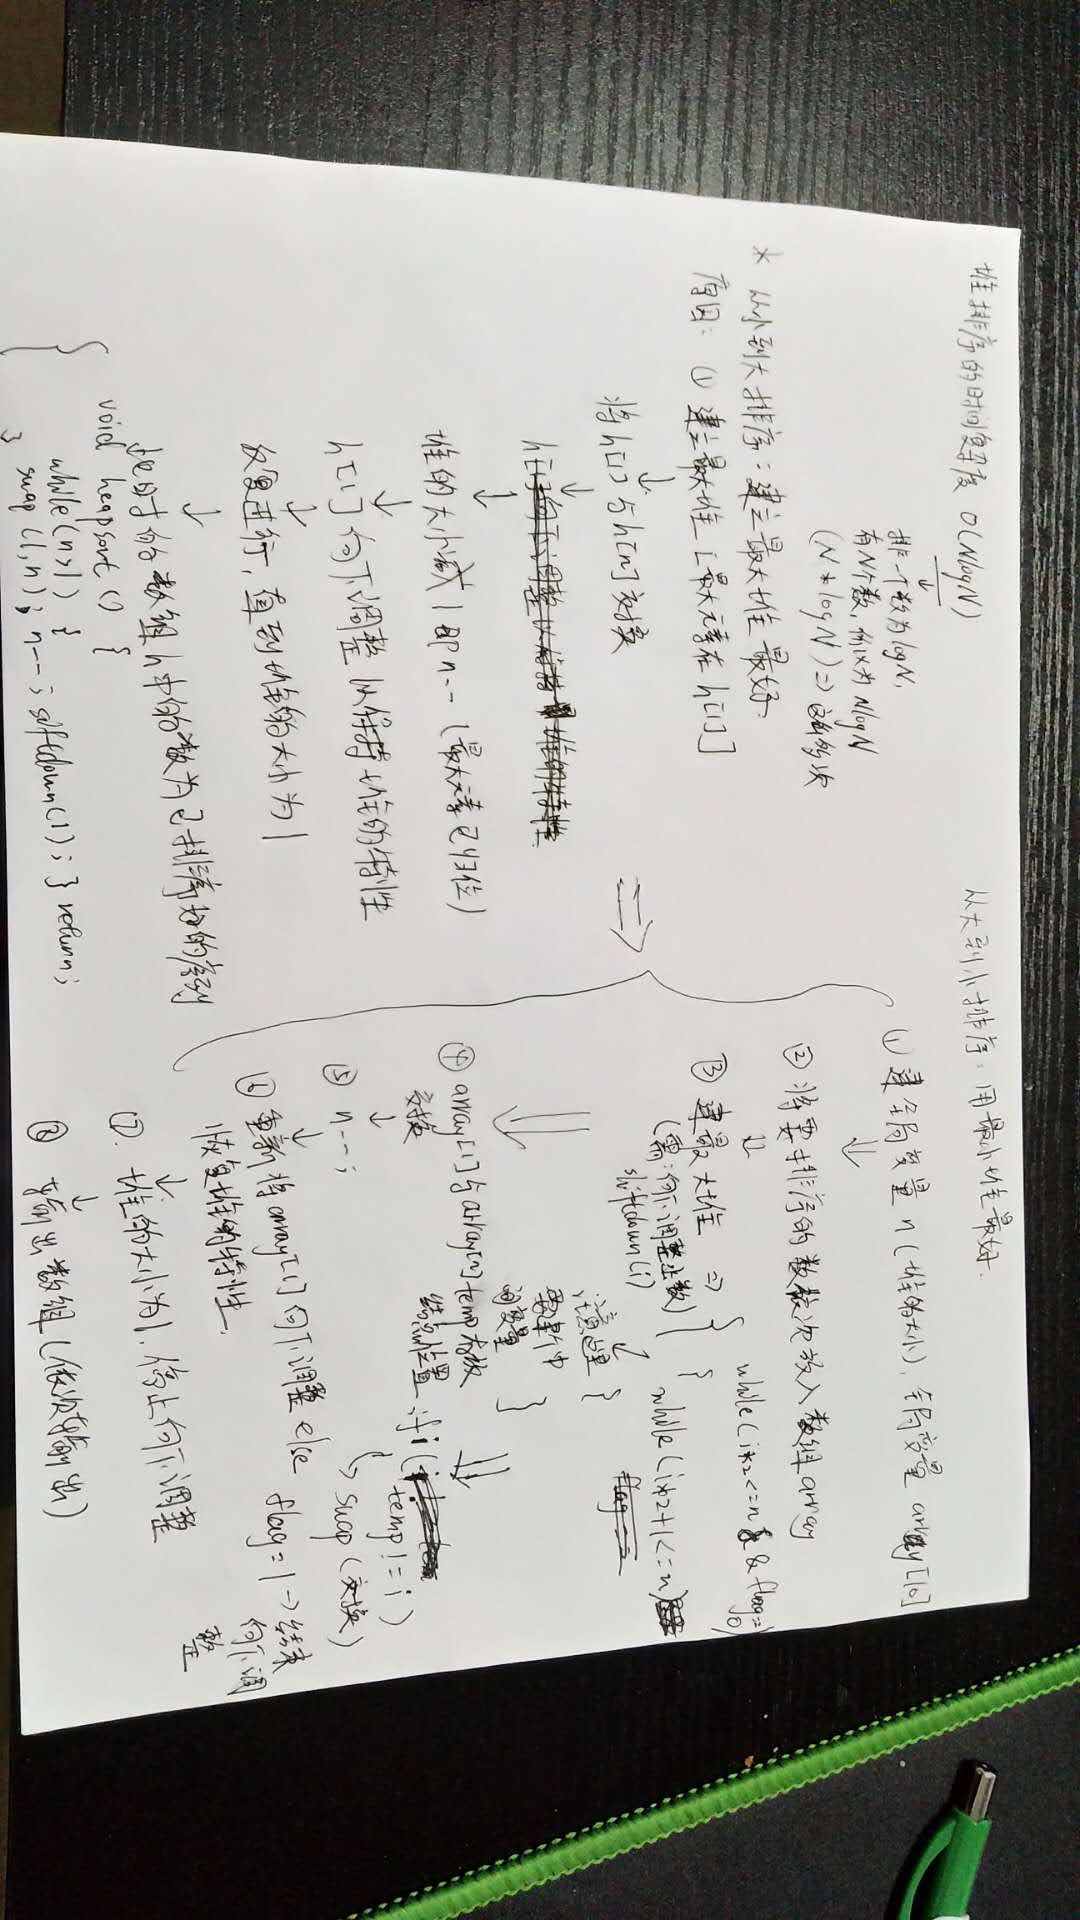 堆排序的时间复杂度 O(NlogN)
↓
排一个数为logN,
有N个数,所以为NlogN
(N*logN)=>这么多次
* 从小到大排序:建立最大堆最好.
原因: ① 建立最大堆[最大元素在h[1]]
↓
将h[1]与h[n]交换
↓
h[1]向下调整以保持堆的特性
↓
堆的大小减1即n--(最大元素已归位)
↓
h[1]向下调整以保持堆的特性
↓
反复进行,直到堆的大小为1
↓
此时的数组h中的数为已排序好的序列
void heapsort() {
while(n>1) {
swap(1,n); n--; siftdown(1); } return;
}
从大到小排序:用最小堆最好.
① 建全局变量n(堆的大小),全局变量array[10]
⇓
② 将要排序的数依次放入数组array
⇓
③ 建最大堆 => {
(需:向下调整函数)
shiftdown(i)
while(i*2<=n && flag==0)
{
while(i*2+1<=n)
flag=
{
}
注意这里
要建个中
间变量
temp存放
结点位置
④ array[1]与array[n]
交换
↓
⑤ n--;
↓
⑥ 重新将array[1]向下调整
恢复堆的特性.
↓
⑦. 堆的大小为1,停止向下调整
↓
⑧ 输出数组(依次输出)
if(
temp!=i)
swap(交换)
else
flag=1→结束
向下调
整